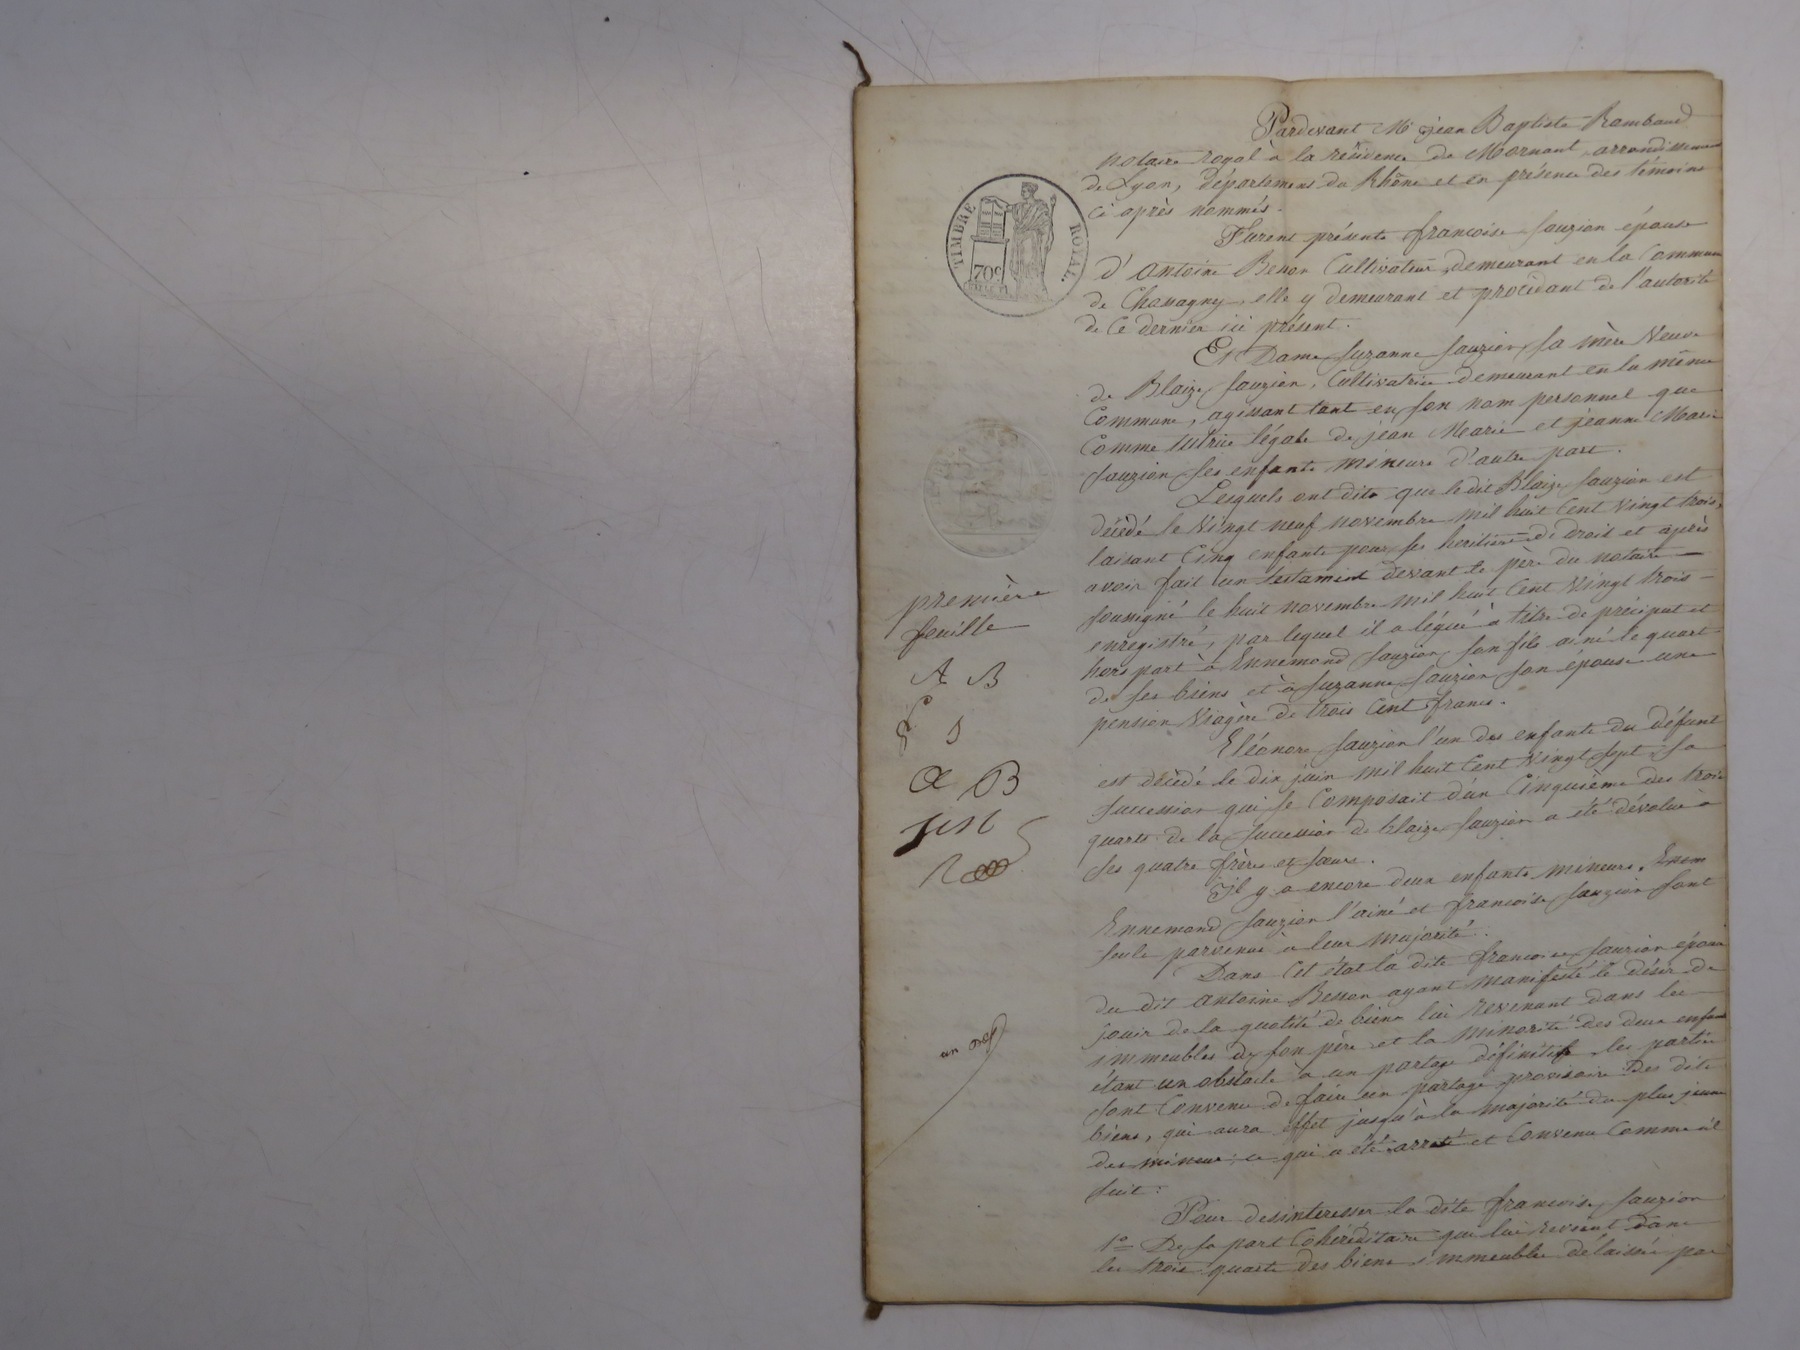 Pardevant Me jean Baptiste Rambaud
notaire royal à la résidence de Mornant arrondissement
de Lyon, département du Rhône et en présence des témoins
ci après nommés.
Furent présents françoise Sauzion épouse
d'antoine Besson Cultivateur, demeurant en la Commune
de Chassagny, elle y demeurant et procédant de l'autorité
de Ce dernier ici présent.
Et Dame Suzanne Sauzion Sa mère Veuve
de Blaize Sauzion, Cultivatrice demeurant en la même
Commune, agissant tant en Son nom personnel que
Comme tutrice légale de jean Marie et jeanne Marie
Sauzion Ses enfants mineurs d'autre part.
Lesquels ont dits que le dit Blaize Sauzion est
décédé le Vingt neuf novembre mil huit Cent Vingt trois,
laissant Cinq enfants pour Ses heritiers de droit et après
avoir fait un testament devant le père du notaire
Soussigné le huit novembre mil huit Cent Vingt trois
enregistré, par lequel il a légué à titre de préciput et
hors part à Ennemond Sauzion Son fils ainé le quart
de Ses biens et à Suzanne Sauzion Son épouse une
pension Viagère de trois Cent francs.
Eléonore Sauzion l'un des enfants du défunt
est décédé le dix juin mil huit Cent Vingt Sept, Sa
Succession qui Se Composait d'un Cinquième des trois
quarts de la Succession de blaize Sauzion a été dévolue à
Ses quatre frères et Sœurs.
Il y a encore deux enfants mineurs. Enem
Ennemond Sauzion l'ainé et françoise Sauzion Sont
Seuls parvenus à leur Majorité.
Dans Cet état la dite françoise Sauzion épouse
du dit antoine Besson ayant manifesté le désir de
jouir de la quotité de biens lui Revenant dans les
immeubles de Son père et la Minorité des deux enfants
étant un obstacle à un partage définitif, les parties
Sont Convenus de faire un partage provisoire Des dits
biens, qui aura effet jusqu'à la majorité du plus jeune
des mineurs; ce qui a été arreté et Convenu Comme il
Suit:
Pour desintéresser la dite françoise Sauzion
1° De Sa part Cohéréditaire qui lui Revient dans
les trois quarts des biens immeubles délaissés par
TIMBRE ROYAL.
70c
première
feuille
A B
S
B